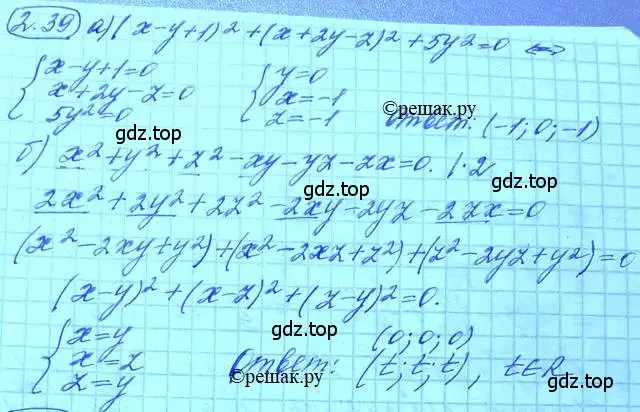 2.39 а) (x-y+1)² + (x+2y-z)² + 5y² = 0 ⟺
{ x-y+1=0
x+2y-z=0
5y²=0
{ y=0
x=-1
z=-1
Ответ: (-1; 0; -1)
©reшак.ру
гдз.top
б) x² + y² + z² - xy - yz - zx = 0. |·2
гдз.top
2x² + 2y² + 2z² - 2xy - 2yz - 2zx = 0
(x² - 2xy + y²) + (x² - 2xz + z²) + (z² - 2yz + y²) = 0
(x-y)² + (x-z)² + (z-y)² = 0.
гдз.top
{ x=y
x=z
z=y
Ответ: (0; 0; 0)
(t; t; t), t∈R
©reшак.ру
гдз.top